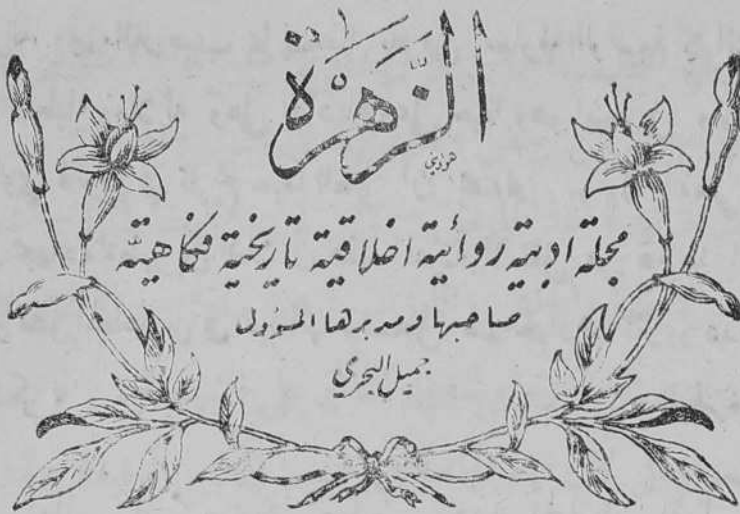 الزَّهرَة
مجلة ادبية روائية اخلاقية تاريخية فكاهيَّة
صاحبها ومديرها المسؤول
جميل البحري